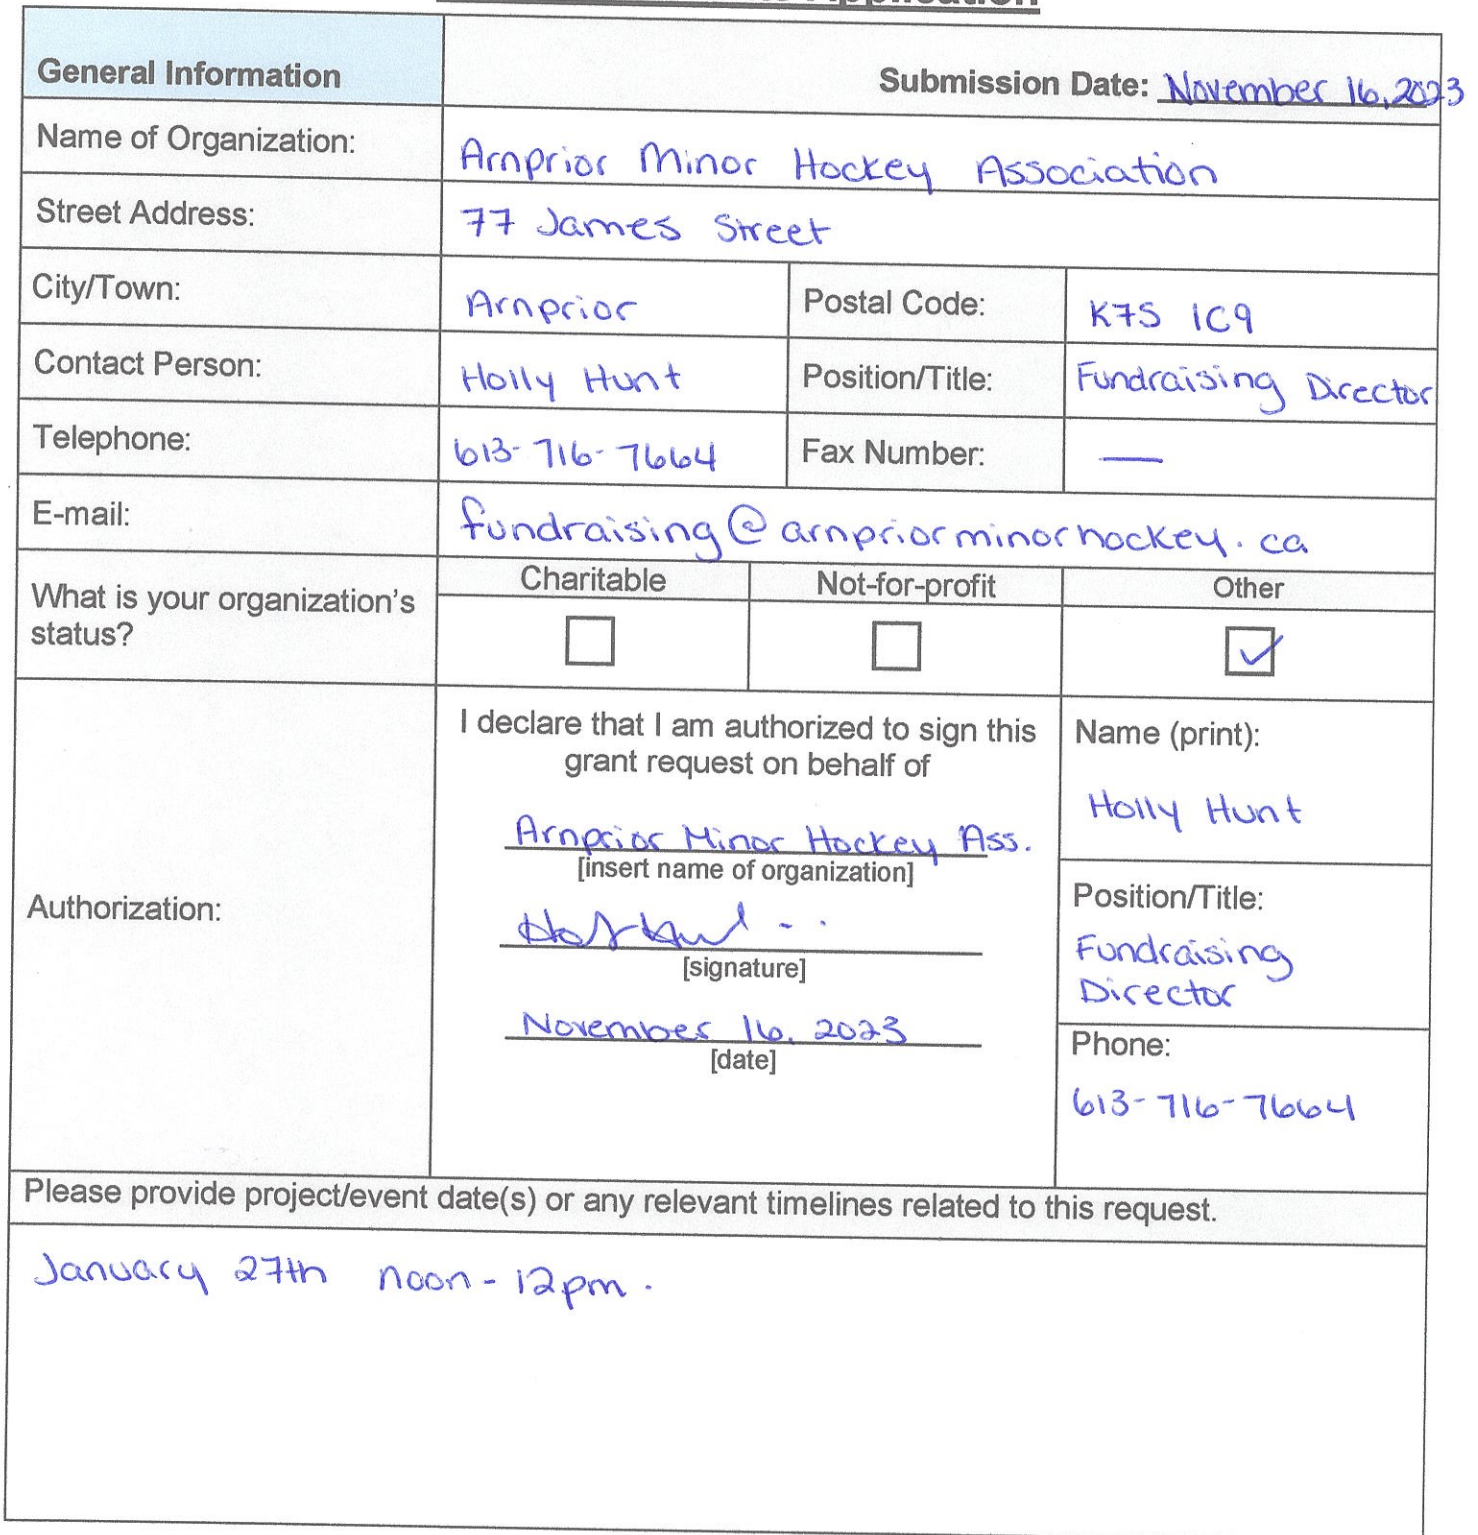 Application
General Information
Submission Date: November 16, 2023
Name of Organization: Arnprior Minor Hockey Association
Street Address: 77 James Street
City/Town: Arnprior Postal Code: K7S 1C9
Contact Person: Holly Hunt Position/Title: Fundraising Director
Telephone: 613-716-7664 Fax Number: —
E-mail: fundraising@arnpriorminorhockey.ca
What is your organization's
status?
Charitable Not-for-profit Other
☐ ☐ ☑
Authorization:
I declare that I am authorized to sign this
grant request on behalf of
Arnprior Minor Hockey Ass.
[insert name of organization]
[signature]
November 16, 2023
[date]
Name (print):
Holly Hunt
Position/Title:
Fundraising
Director
Phone:
613-716-7664
Please provide project/event date(s) or any relevant timelines related to this request.
January 27th noon - 12pm.